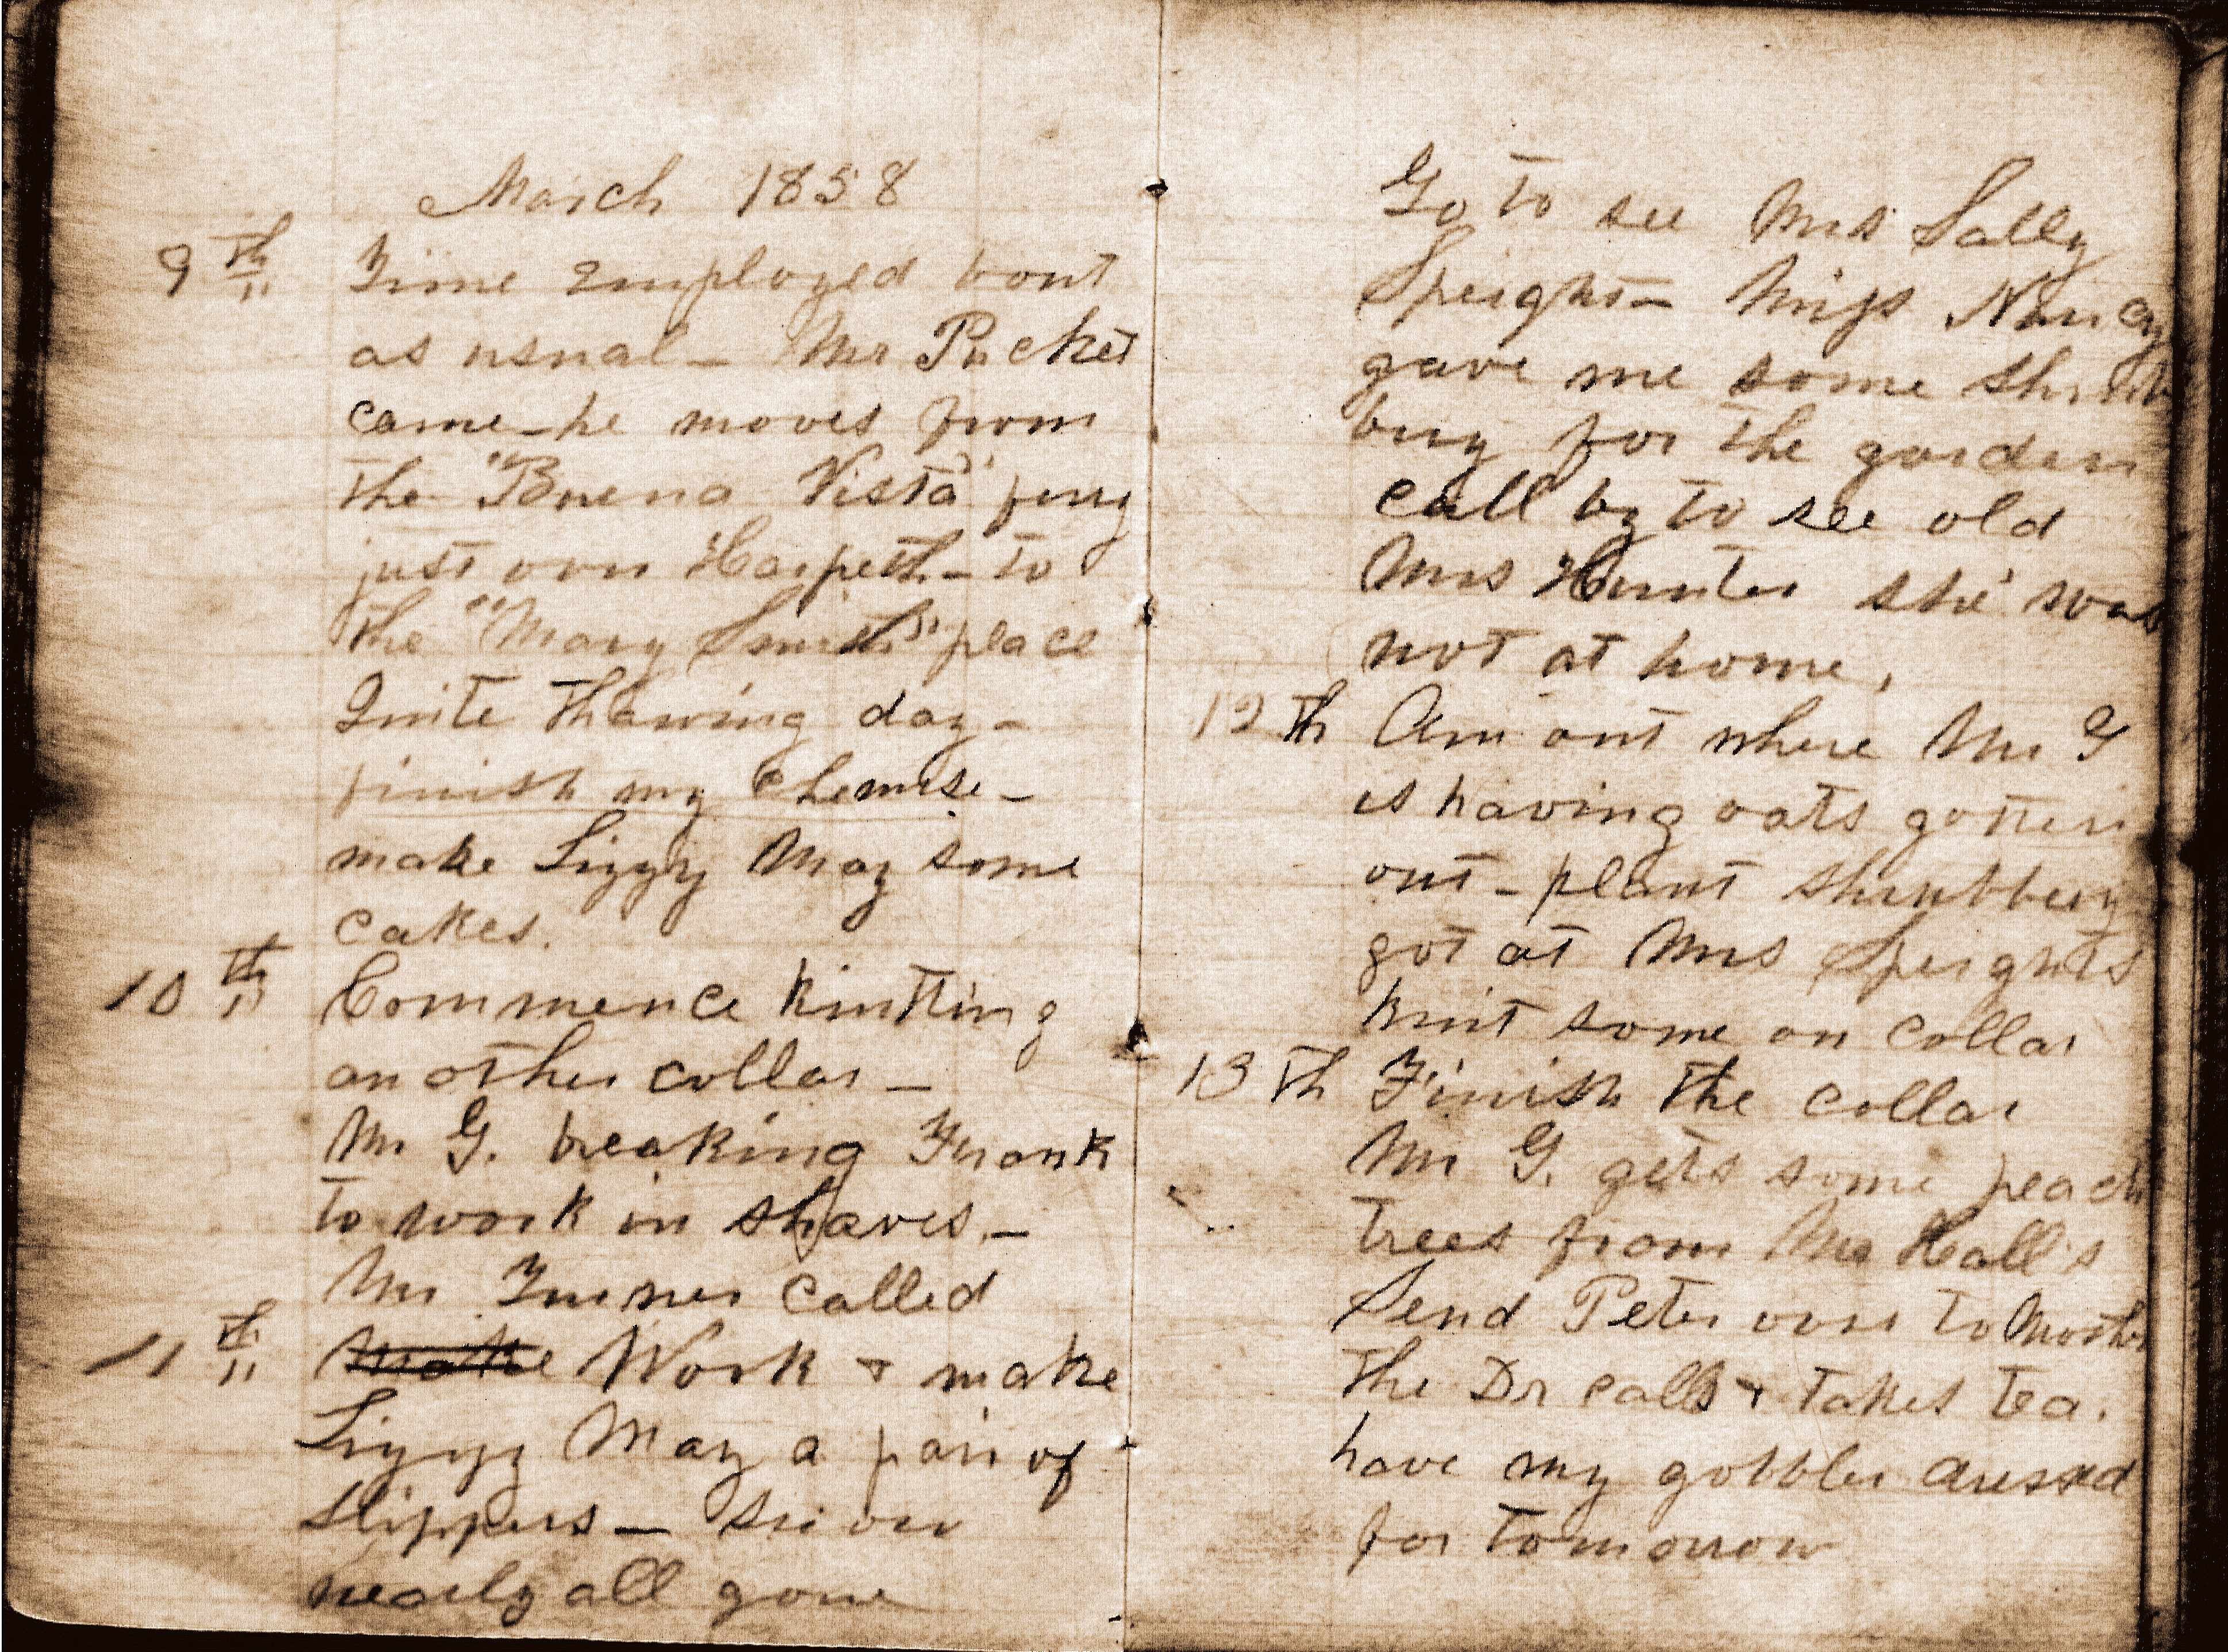 March 1858
9th Time employed bout
as usual - Mr Pucket
came - he moves from
the "Buena Vista" ferry
just over Harpeth - to
the "Mary Smith" place
Quite thawing day -
finish my chemise -
make Lizzy May some
cakes.
10th Commence knitting
another collar -
Mr G. breaking Frank
to work in shaves. -
Mr Turner called
11th make Work + make
Lizzy May a pair of
slippers - snow
nearly all gone
Go to see Mrs Sally
Speight - Miss Nancy
gave me some shrub
bery for the garden
call by to see old
Mrs Hunter she was
not at home,
12th Am out where Mr G
is having oats gotten
out - plant shrubbery
got at Mrs Speights
knit some on collar
13th Finish the collar
Mr G. gets some peach
trees from Mr Hall's
Send Peter over to Mother
The Dr calls + takes tea.
have my gobbler dressed
for tomorrow